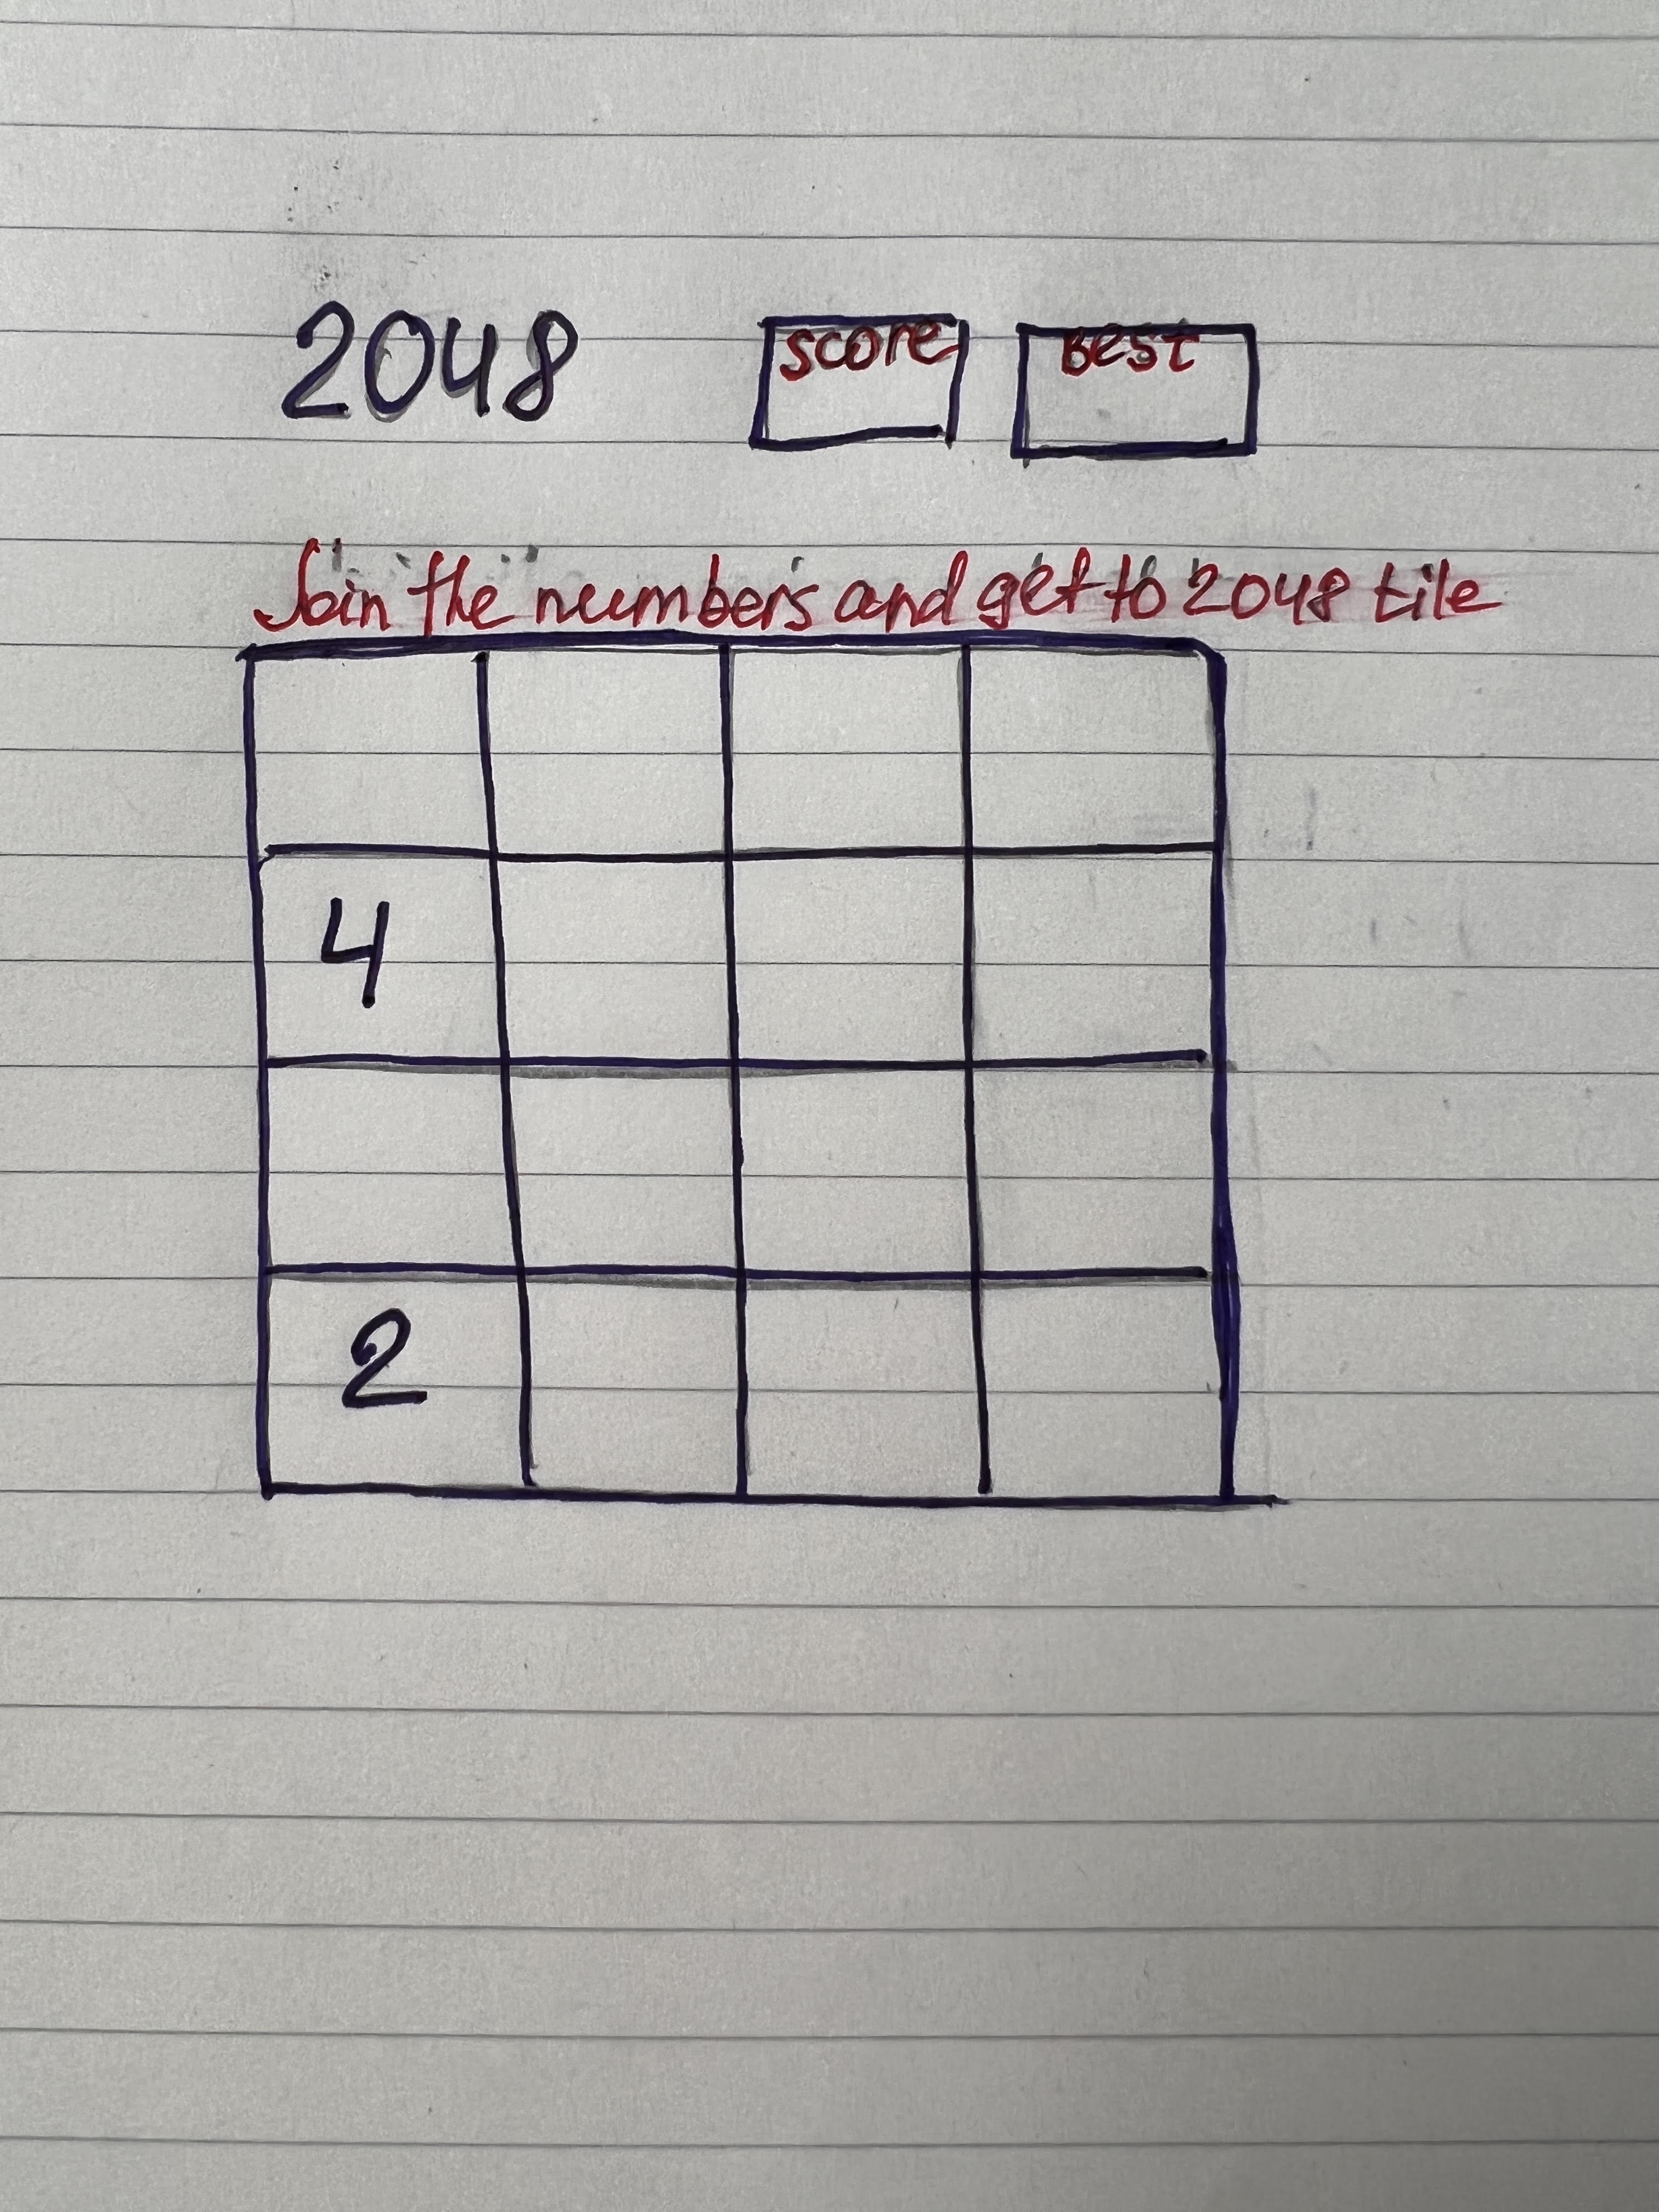 2048 score Best
Join the numbers and get to 2048 tile
4
2